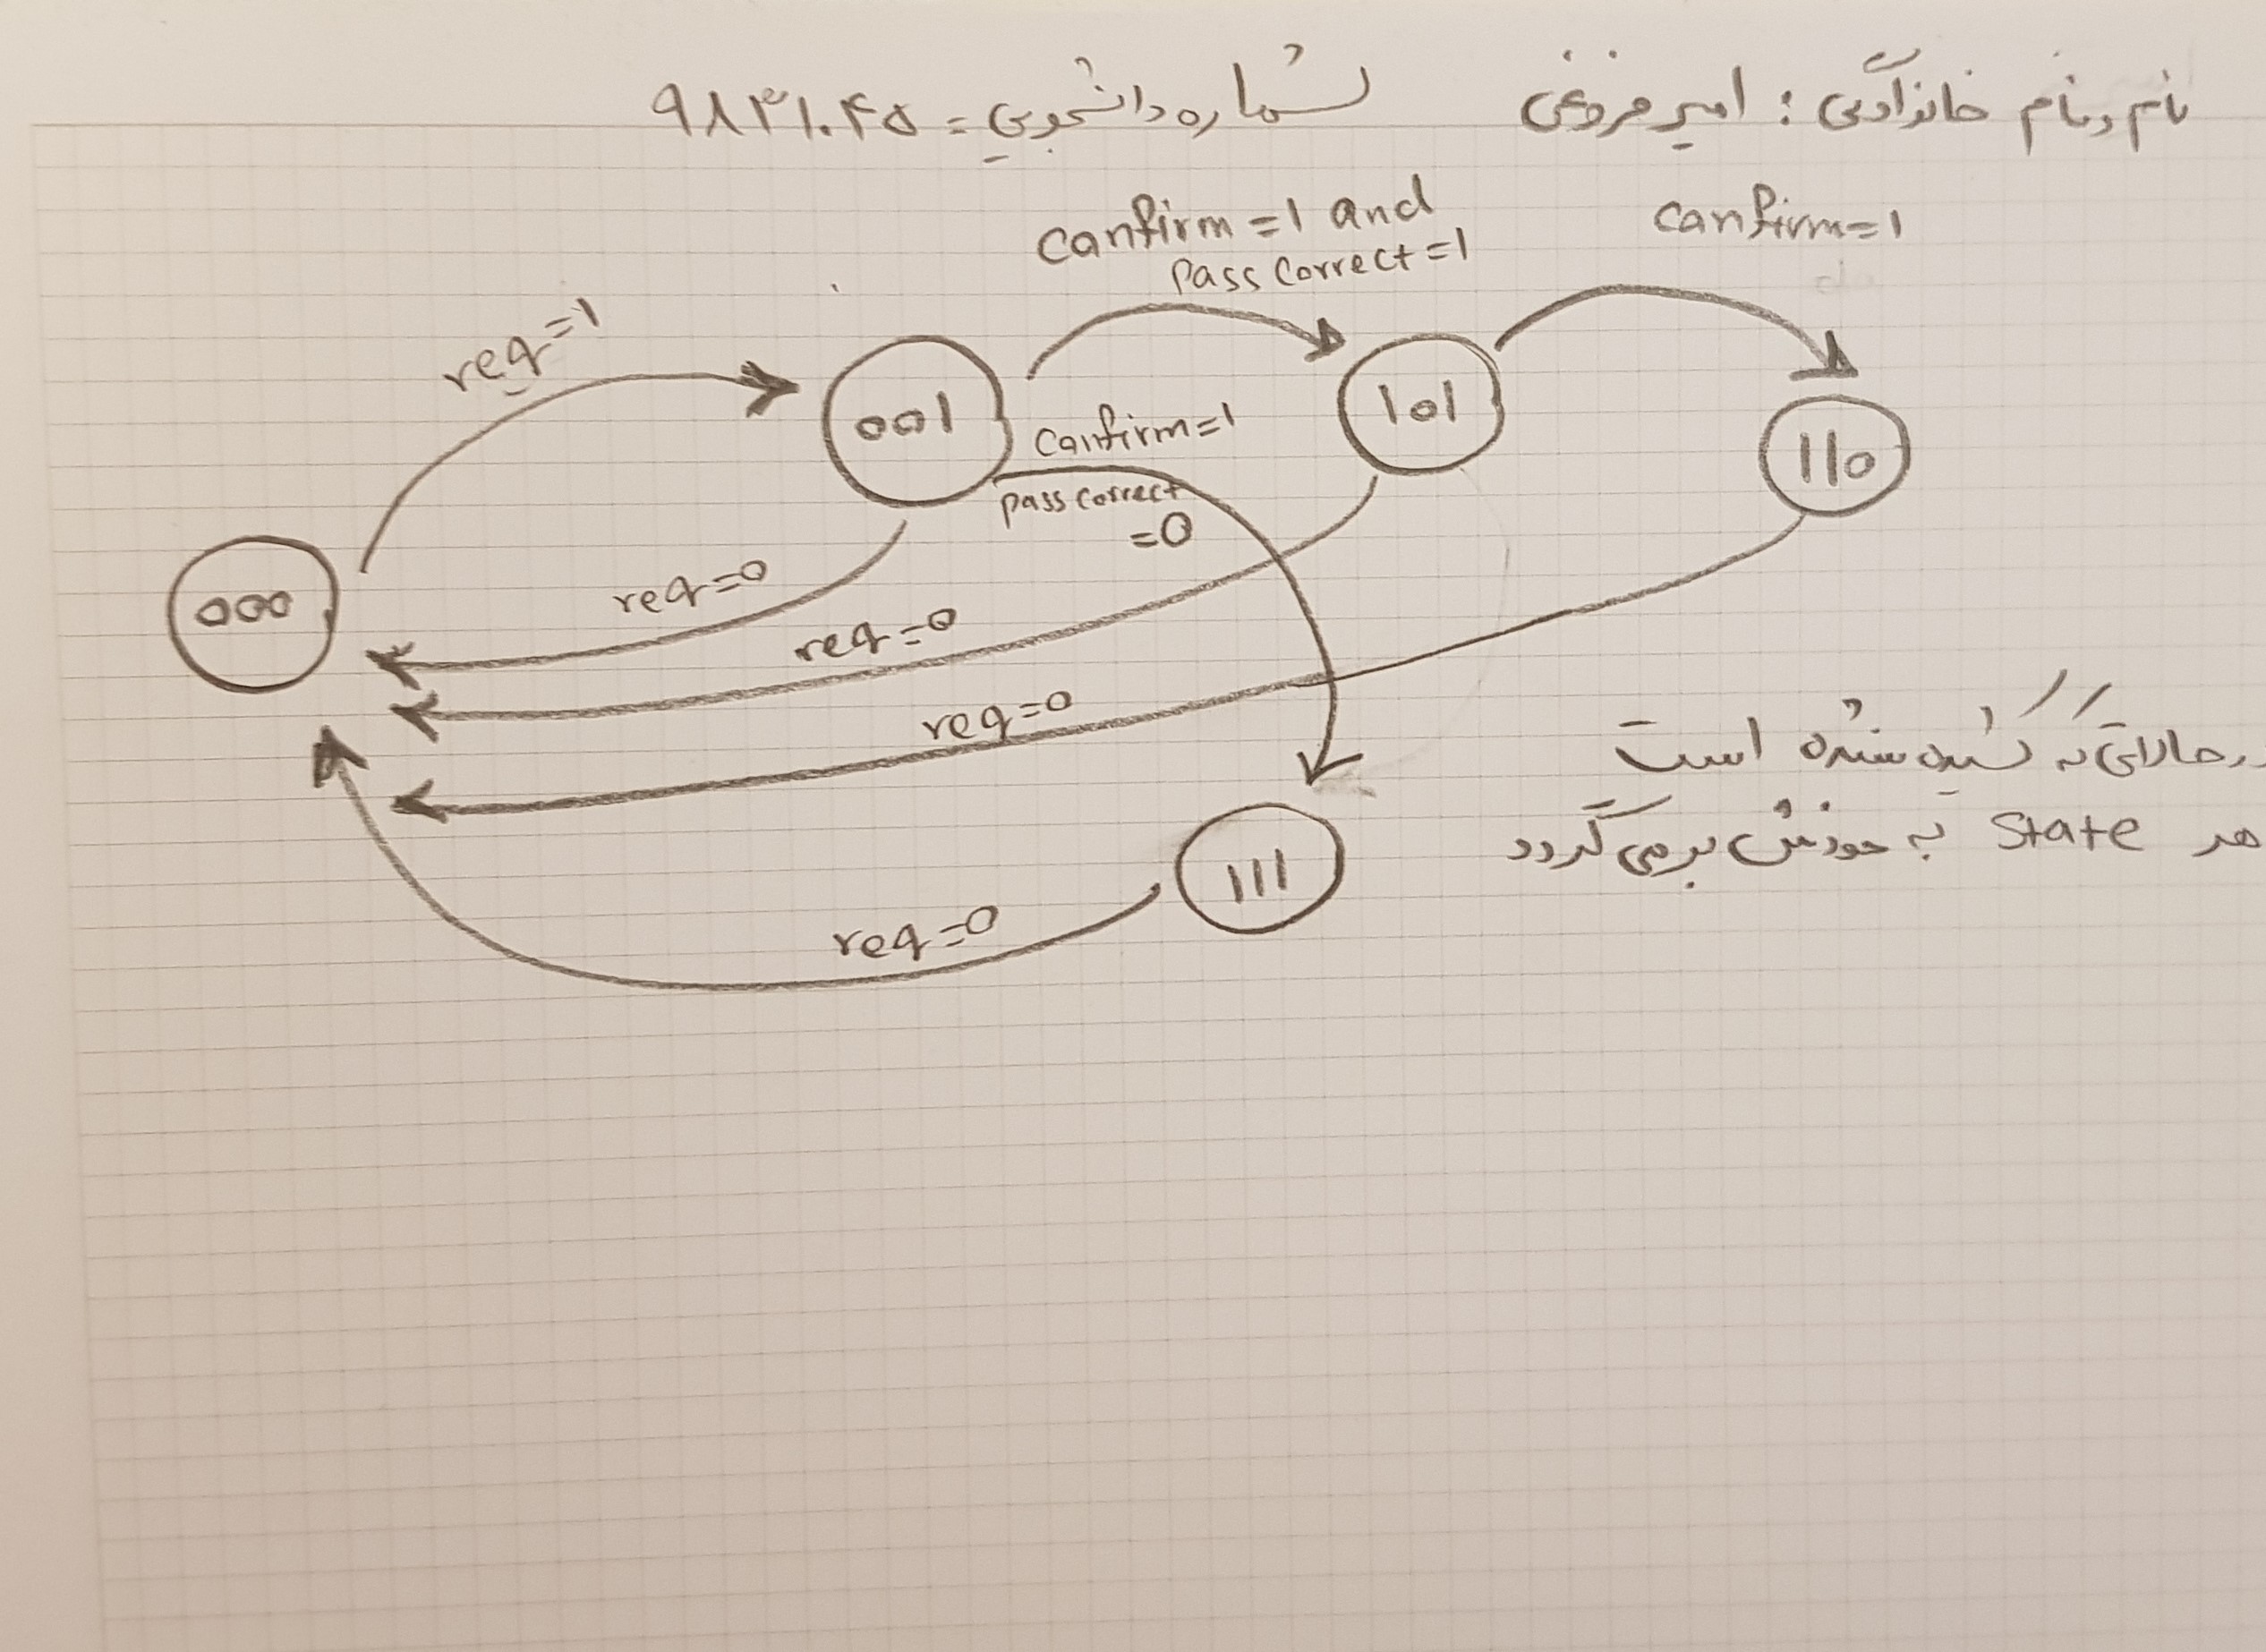 نام و نام خانوادگی : امیر فروغی شماره دانشجویی = ۹۸۳۱۰۴۵
canfirm=1 and
pass correct=1
canfirm=1
req=1
001
101
110
canfirm=1
pass correct
=0
000
req=0
req=0
req=0
در حالاتی که کشیده نشده است
هر state به خودش برمی گردد
111
req=0